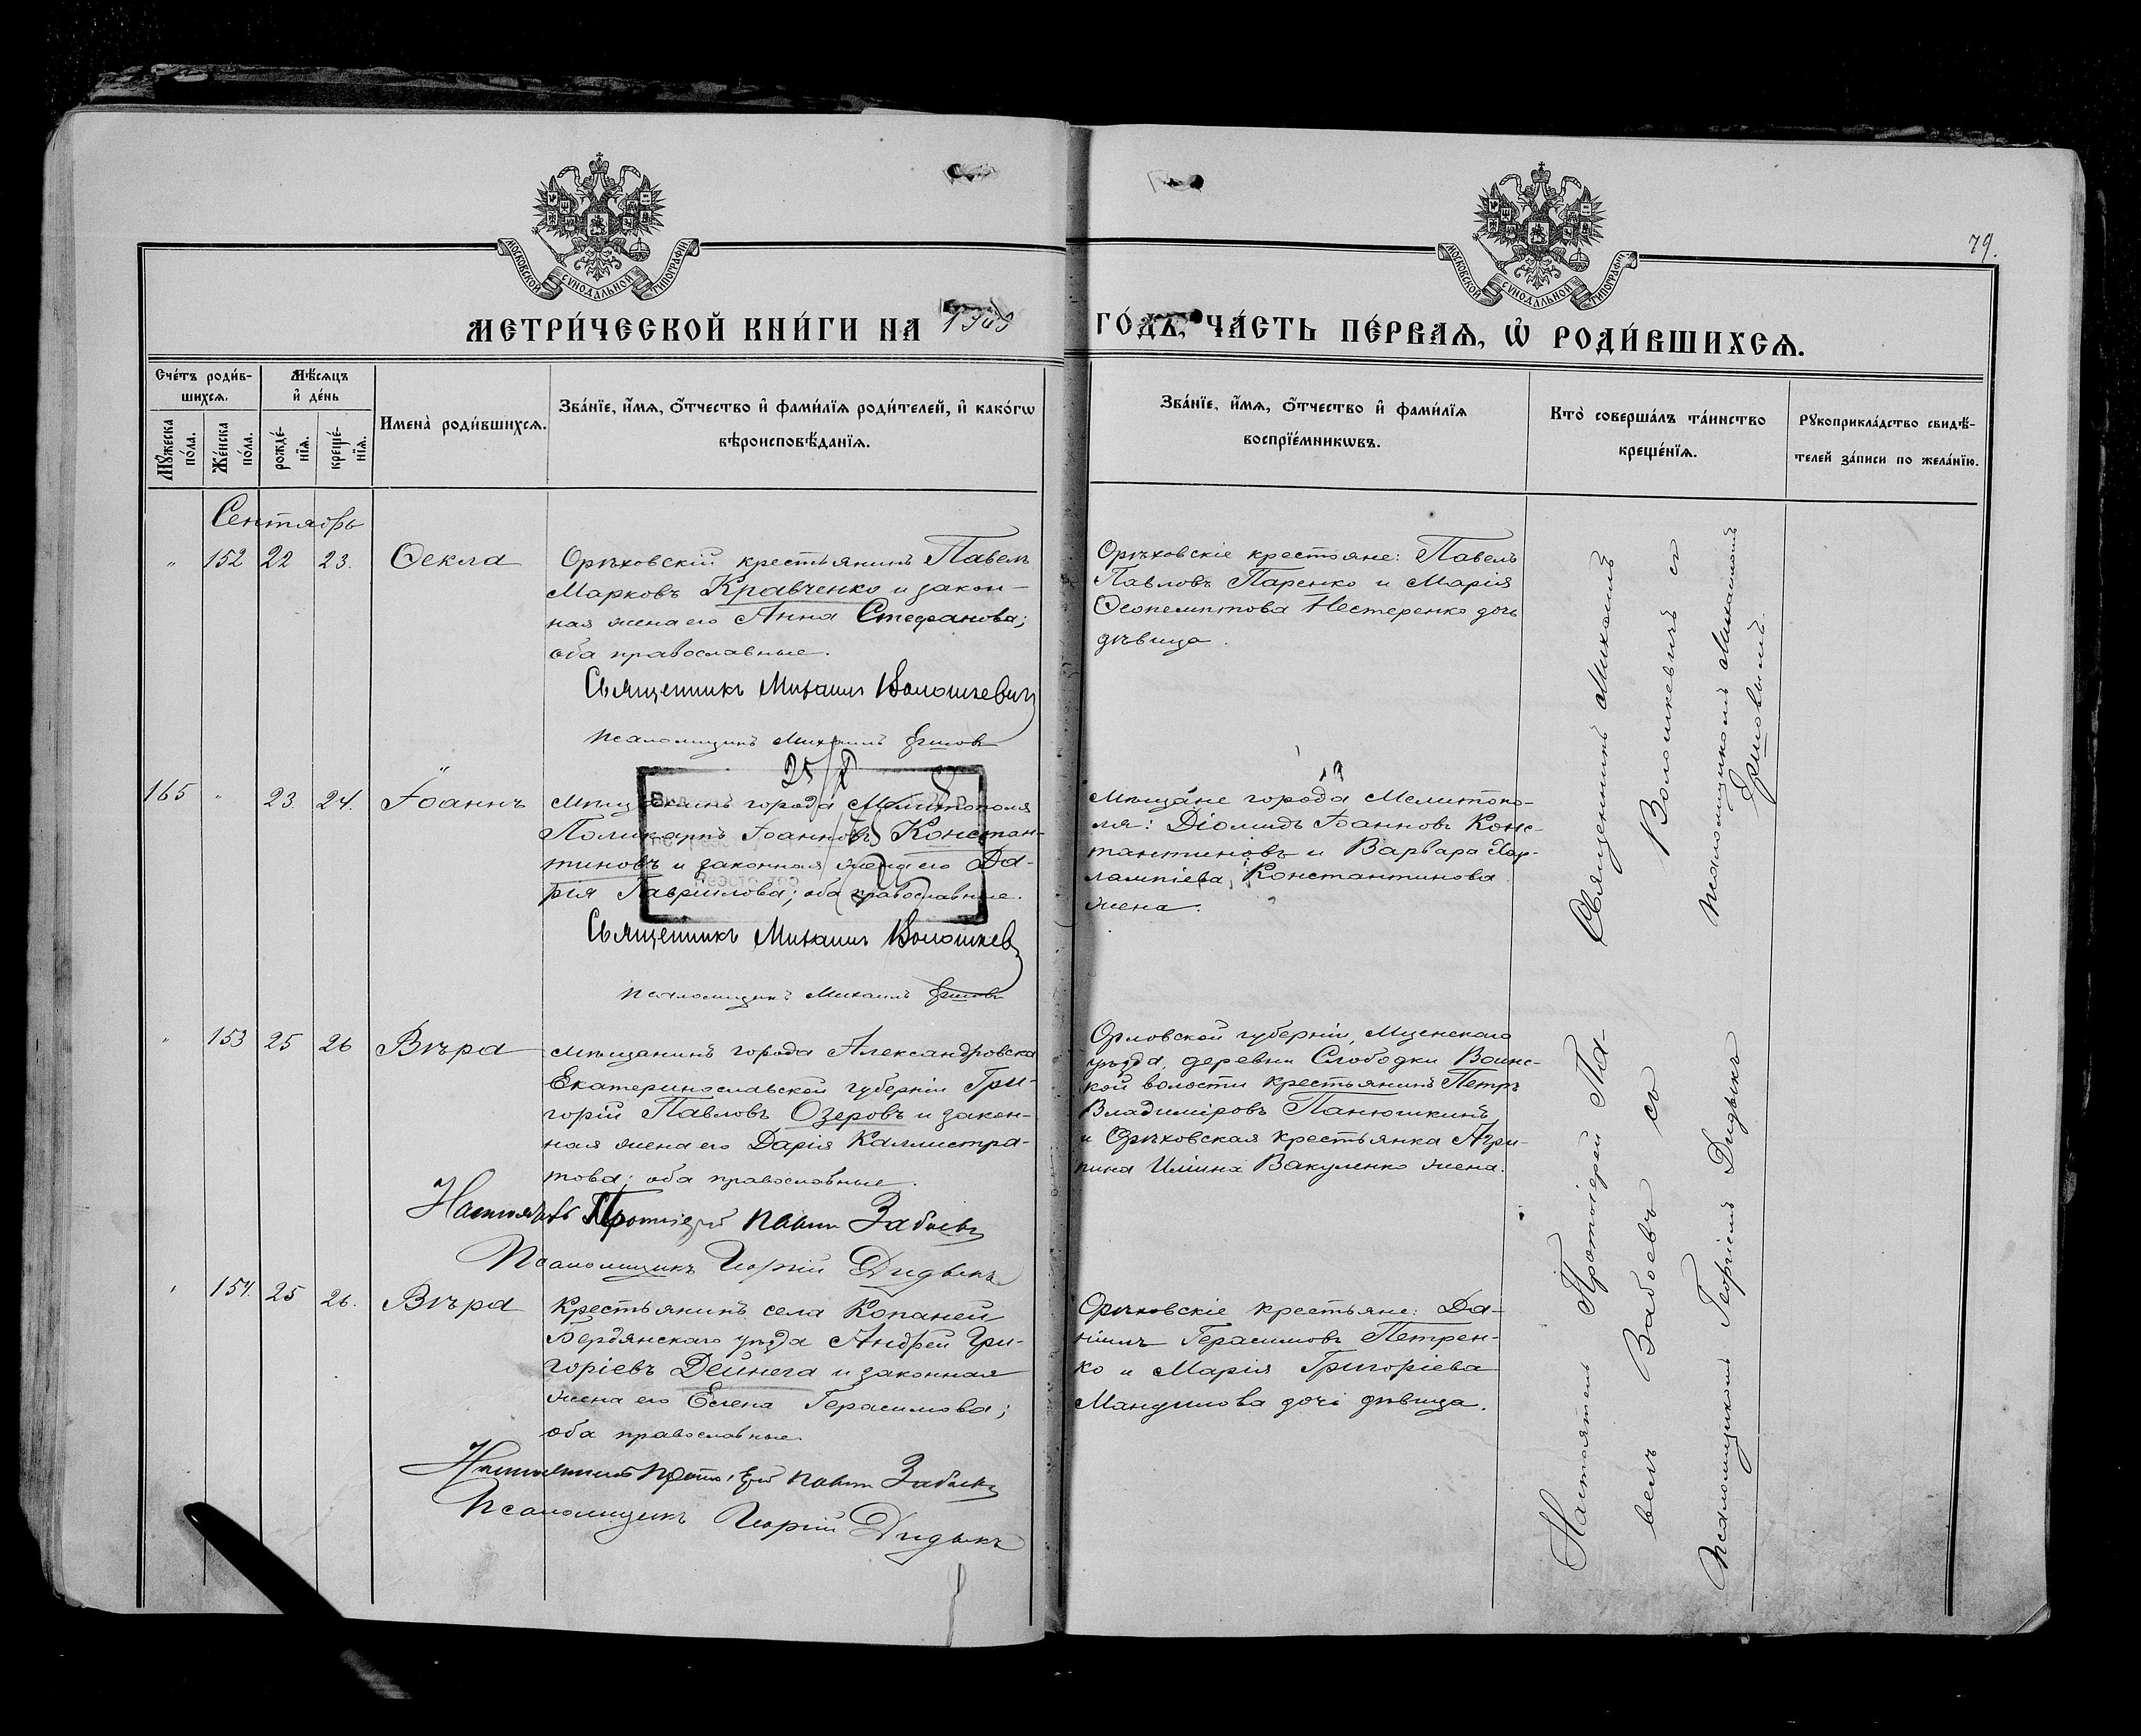 МОСКОВСКОЙ СУНОДАЛЬНОЙ ТИПОГРАФІИ
МОСКОВСКОЙ СУНОДАЛЬНОЙ ТИПОГРАФІИ
79.
МЕТРИ́ЧЕСКОЙ КНИ́ГИ НА 1909 ГО́ДЪ, ЧА́СТЬ ПЕ́РВАѦ, Ѡ҆ РОДИ́ВШИХСѦ.
Сче́тъ роди́в-
шихсѧ.
Мѣ́сѧцъ
и҆ де́нь
Мꙋ́жеска
по́ла.
Же́нска
по́ла.
рожде́-
нїѧ.
креще́-
нїѧ.
Имена̀ роди́вшихсѧ.
Зва́нїе, и҆́мѧ, ѻ҆́тчество и҆ фами́лїѧ роди́телей, и҆ како́гѡ
вѣроисповѣ́данїѧ.
Зва́нїе, и҆́мѧ, ѻ҆́тчество и҆ фами́лїѧ
воспрїе́мникѡвъ.
Кто̀ соверша́лъ та́инство
креще́нїѧ.
Рꙋкоприкла́дство свидѣ́-
телей за́писи по жела́нїю.
Сентябрь
" 152 22 23. Ѳекла
Орѣховскій крестьянинъ Павелъ
Марковъ Кравченко и закон-
ная жена его Анна Стефанова;
оба православные.
Священникъ Михаилъ Волошкевичъ
Псаломщикъ Михаилъ Ершовъ
Орѣховскіе крестьяне: Павелъ
Павловъ Паренко и Марія
Ѳеопемптова Нестеренко дочь
дѣвица.
Священникъ Михаилъ
Волошкевичъ съ
псаломщикомъ Михаиломъ
Ершовымъ.
165 " 23. 24. Іоаннъ
Мѣщанинъ города Мелитополя
Поликарпъ Іоанновъ Констан-
тиновъ и законная жена его Да-
рія Гавриилова; оба православные.
Священникъ Михаилъ Волошкев
Псаломщикъ Михаилъ Ершовъ
Мѣщане города Мелитопо-
ля: Діомидъ Іоанновъ Конс-
тантиновъ и Варвара Хар-
лампіева Константинова
жена.
" 153 25 26 Вѣра
Мѣщанинъ города Александровска
Екатеринославской губерніи Гри-
горій Павловъ Озеровъ и закон-
ная жена его Дарія Каллистра-
това; оба православные.
Настоятель Протоіерей Павелъ Забоевъ
Псаломщикъ Георгій Дидыкъ
Орловской губерніи, Мценскаго
уѣзда, деревни Слободки Воинс-
кой волости крестьянинъ Петръ
Владиміровъ Панюшкинъ
и Орѣховская крестьянка Агри-
пина Иліина Вакуленко жена.
Настоятель Протоіерей Па-
велъ Забоевъ съ
псаломщикомъ Георгіемъ Дидыкъ
" 154. 25 26. Вѣра
Крестьянинъ села Копаней
Бердянскаго уѣзда Андрей Гри-
горіевъ Дейнега и законная
жена его Елена Герасимова;
оба православные.
Настоятель Протоіерей Павелъ Забоевъ
Псаломщикъ Георгій Дидыкъ
Орѣховскіе крестьяне: Да-
ніилъ Герасимовъ Петрен-
ко и Марія Григоріева
Мандилова дочь дѣвица.